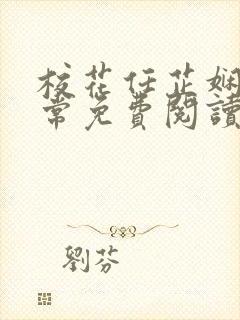 校花任芷娴
常免費閱讀
劉芬